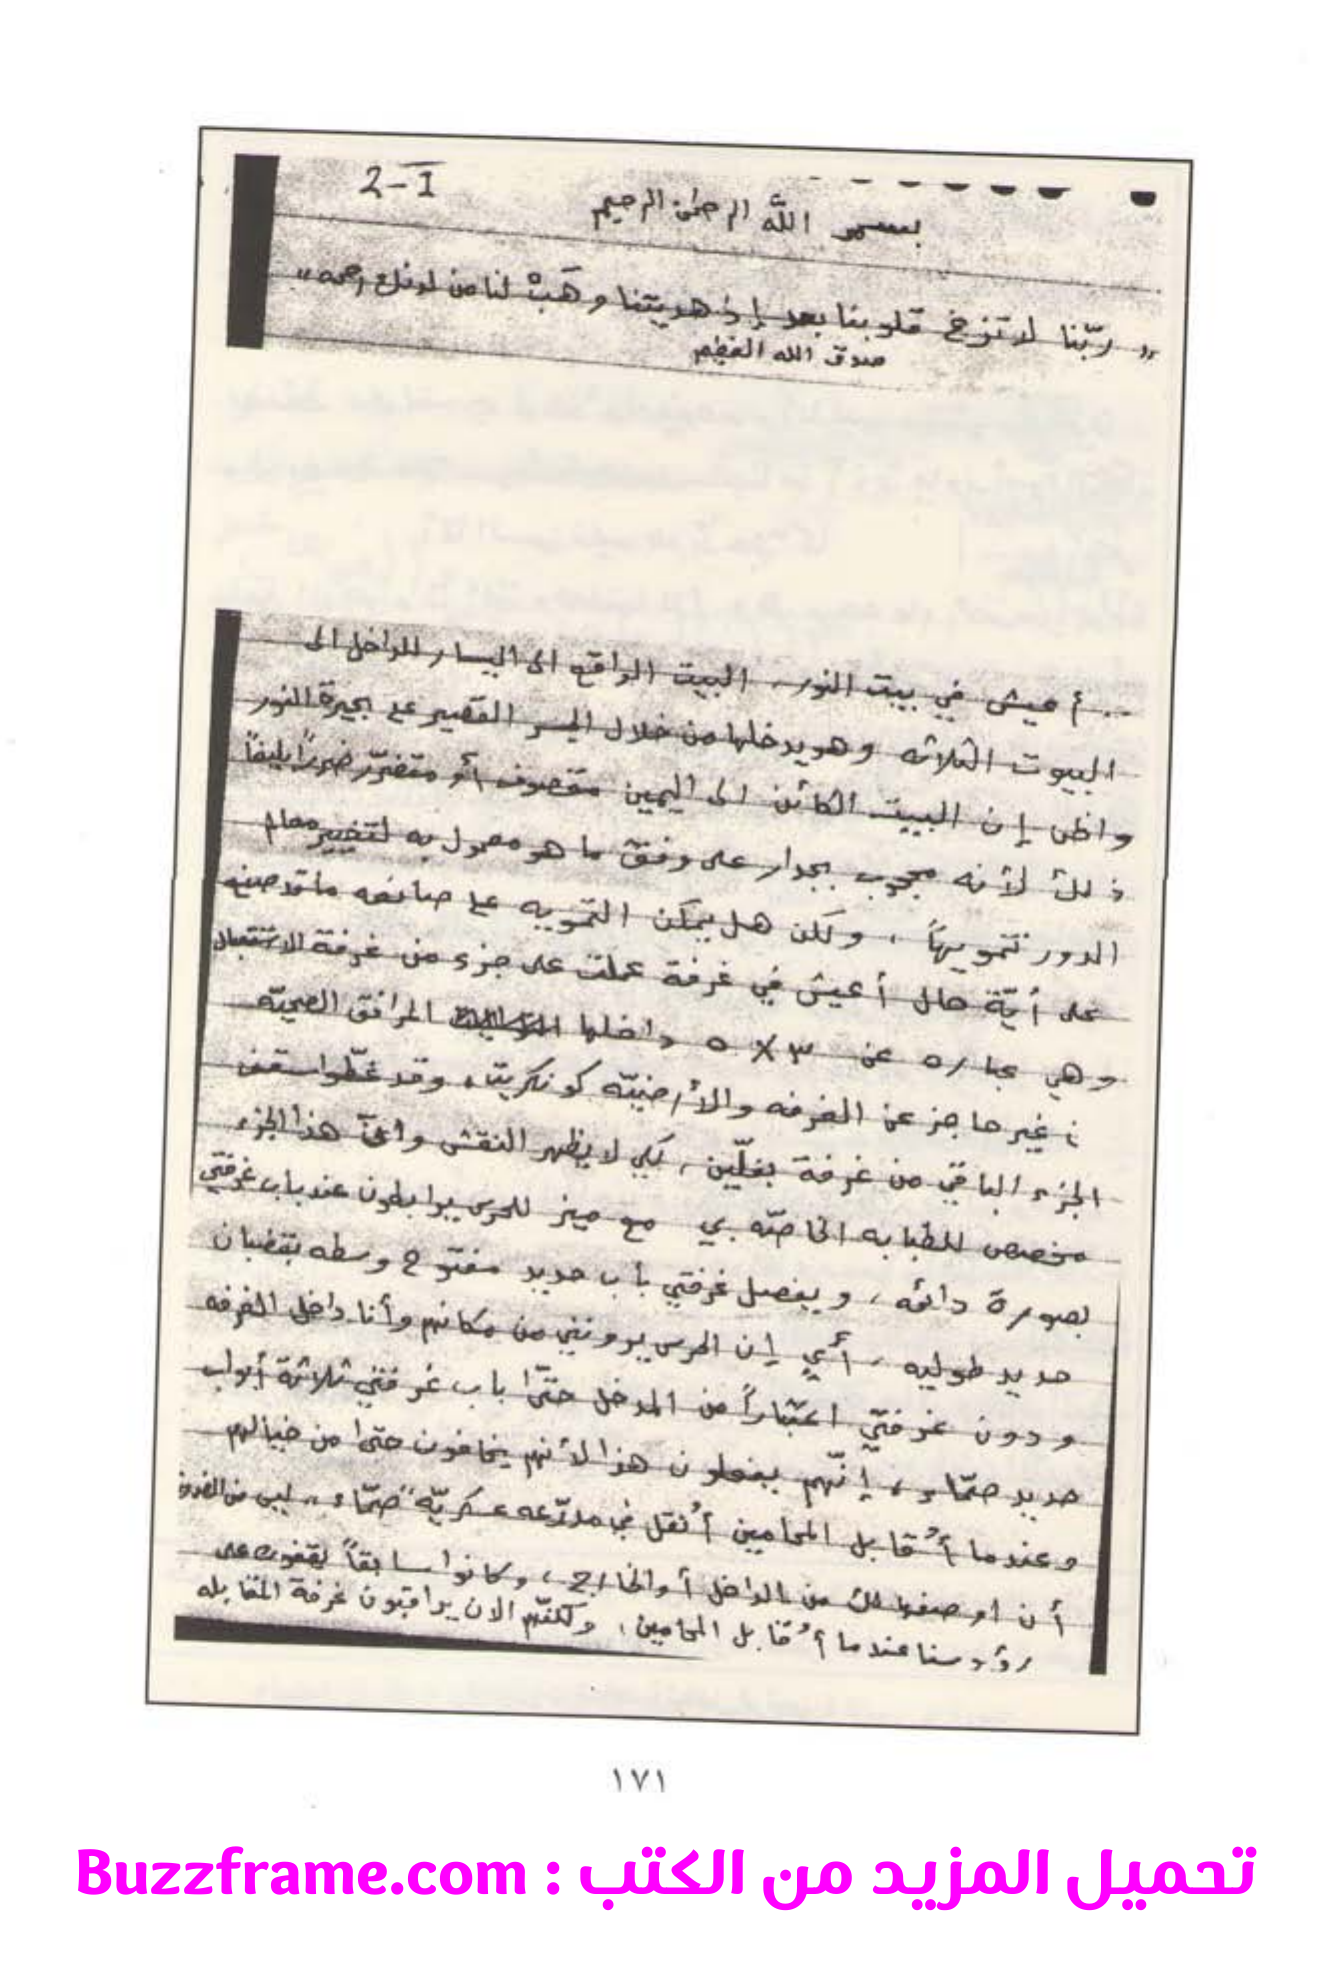 2-I
بسم الله الرحمن الرحيم
„ ربّنا لا تزغ قلوبنا بعد إذ هديتنا وهَبْ لنا من لدنك رحمه "
صدق الله العظيم
.. أعيش في بيت النور، البيت الواقع الى اليسار للداخل الى
البيوت الثلاثه وهو يدخلها من خلال الجسر القصير على بحيرة النور
واظن إن البيت الكائن الى اليمين مقصوف أو متضرّر ضررًا بليغاً
ذلك لأنه محجوب بجدار على وفق ما هو معمول به لتغيير معالم
الدور تمويهاً، ولكن هل يمكن التمويه على صانعه ما قد صنع
على أيّة حال أعيش في غرفة عملت على جزء من غرفة الاستقبال
وهي عباره عن ٣ × ٥ داخلها المرافق الصحيّه
غير حاجز عن الغرفه والأرضيّه كونكريت، وقد غطّوا سقف
الجزء الباقي من غرفة بفلّين، لكي لا يظهر النقش هذا الجزء
مخصص للطبابه الخاصّه بي مع ميز للحرس يرابطون عند باب غرفتي
بصورة دائمه، ويفصل غرفتي باب حديد مفتوح وسطه بقضبان
حديد طوليه، أي إن الحرس يرونني من مكانهم وأنا داخل الغرفه
ودون غرفتي اعتباراً من المدخل حتّى باب غرفتي ثلاثة أبواب
حديد صمّاء، إنّهم يفعلون هذا لأنهم يخافون حتى من خيالهم
وعندما أُقابل المحامين أُنقل في مدرّعه عسكريّه "صمّاء" ليس من الضروري
أن اوصفها لك من الداخل أو الخارج، وكانوا سابقاً يقفون على
رؤوسنا عندما أُقابل المحامين، ولكنّهم الان يراقبون غرفة المقابله
١٧١
تحميل المزيد من الكتب : Buzzframe.com